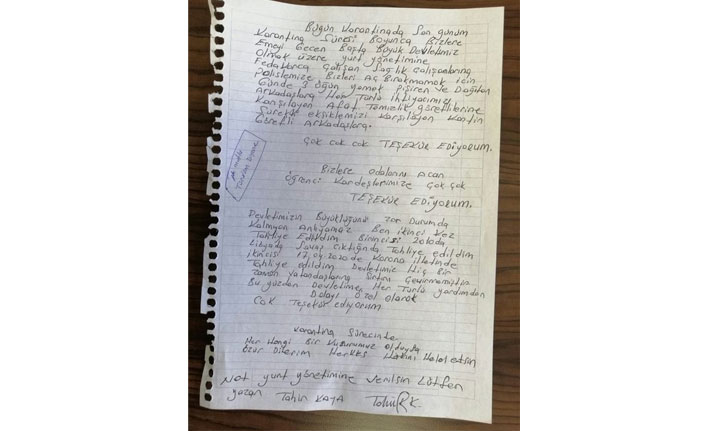 Bügün Karantinada Son günüm
Karantina Süresi Boyunca Bizlere
Emeği Geçen Başta Büyük Devletimiz
Olmak üzere yurt yönetimine
Fedakarca Çalışan Sağlık Çalışanlarına
Polislemize Bizleri Aç Bırakmamak için
Günde 3 öğün yemek pişiren ve Dağıtan
Arkadaşlara Her Türlü ihtiyacımızı
Karşılayan Afat Temizlik görevlilerine
eksiklemizi Karşılayan Kantin
Görevli Arkadaşlara.
Çok cok cok TEŞEKÜR EDiyORUM.
Bizlere odalarını Acan
Öğrenci Kardeşlerimize çok çok
TEŞEKÜR EDiyorum.
Devletimizin Büyüklüğünü zor Durumda
Kalmıyan Anlıyamaz Ben ikinci Kez
Tahliye Edildim Birincisi 2010da
Libyada Savaş Çıktığında Tahliye edildim
ikincisi 17,04,2020 de Korona illetinde
Tahliye edildim Devletimiz Hiç Bir
zaman Vatandaşlarına Sırtını
Bu yüzden Devletime, Her Türlü yardımdan
Dolayı özel olarak
Cok Teşekür ediyorum
Karantina Sürecinte
Her Hangi Bir Kusurumuz olduysa
Özür Dilerim Herkes Hakını Helal etsin
Not yurt yönetimine verilsin Lütfen
yazan Tahir KAYA Tahir K.